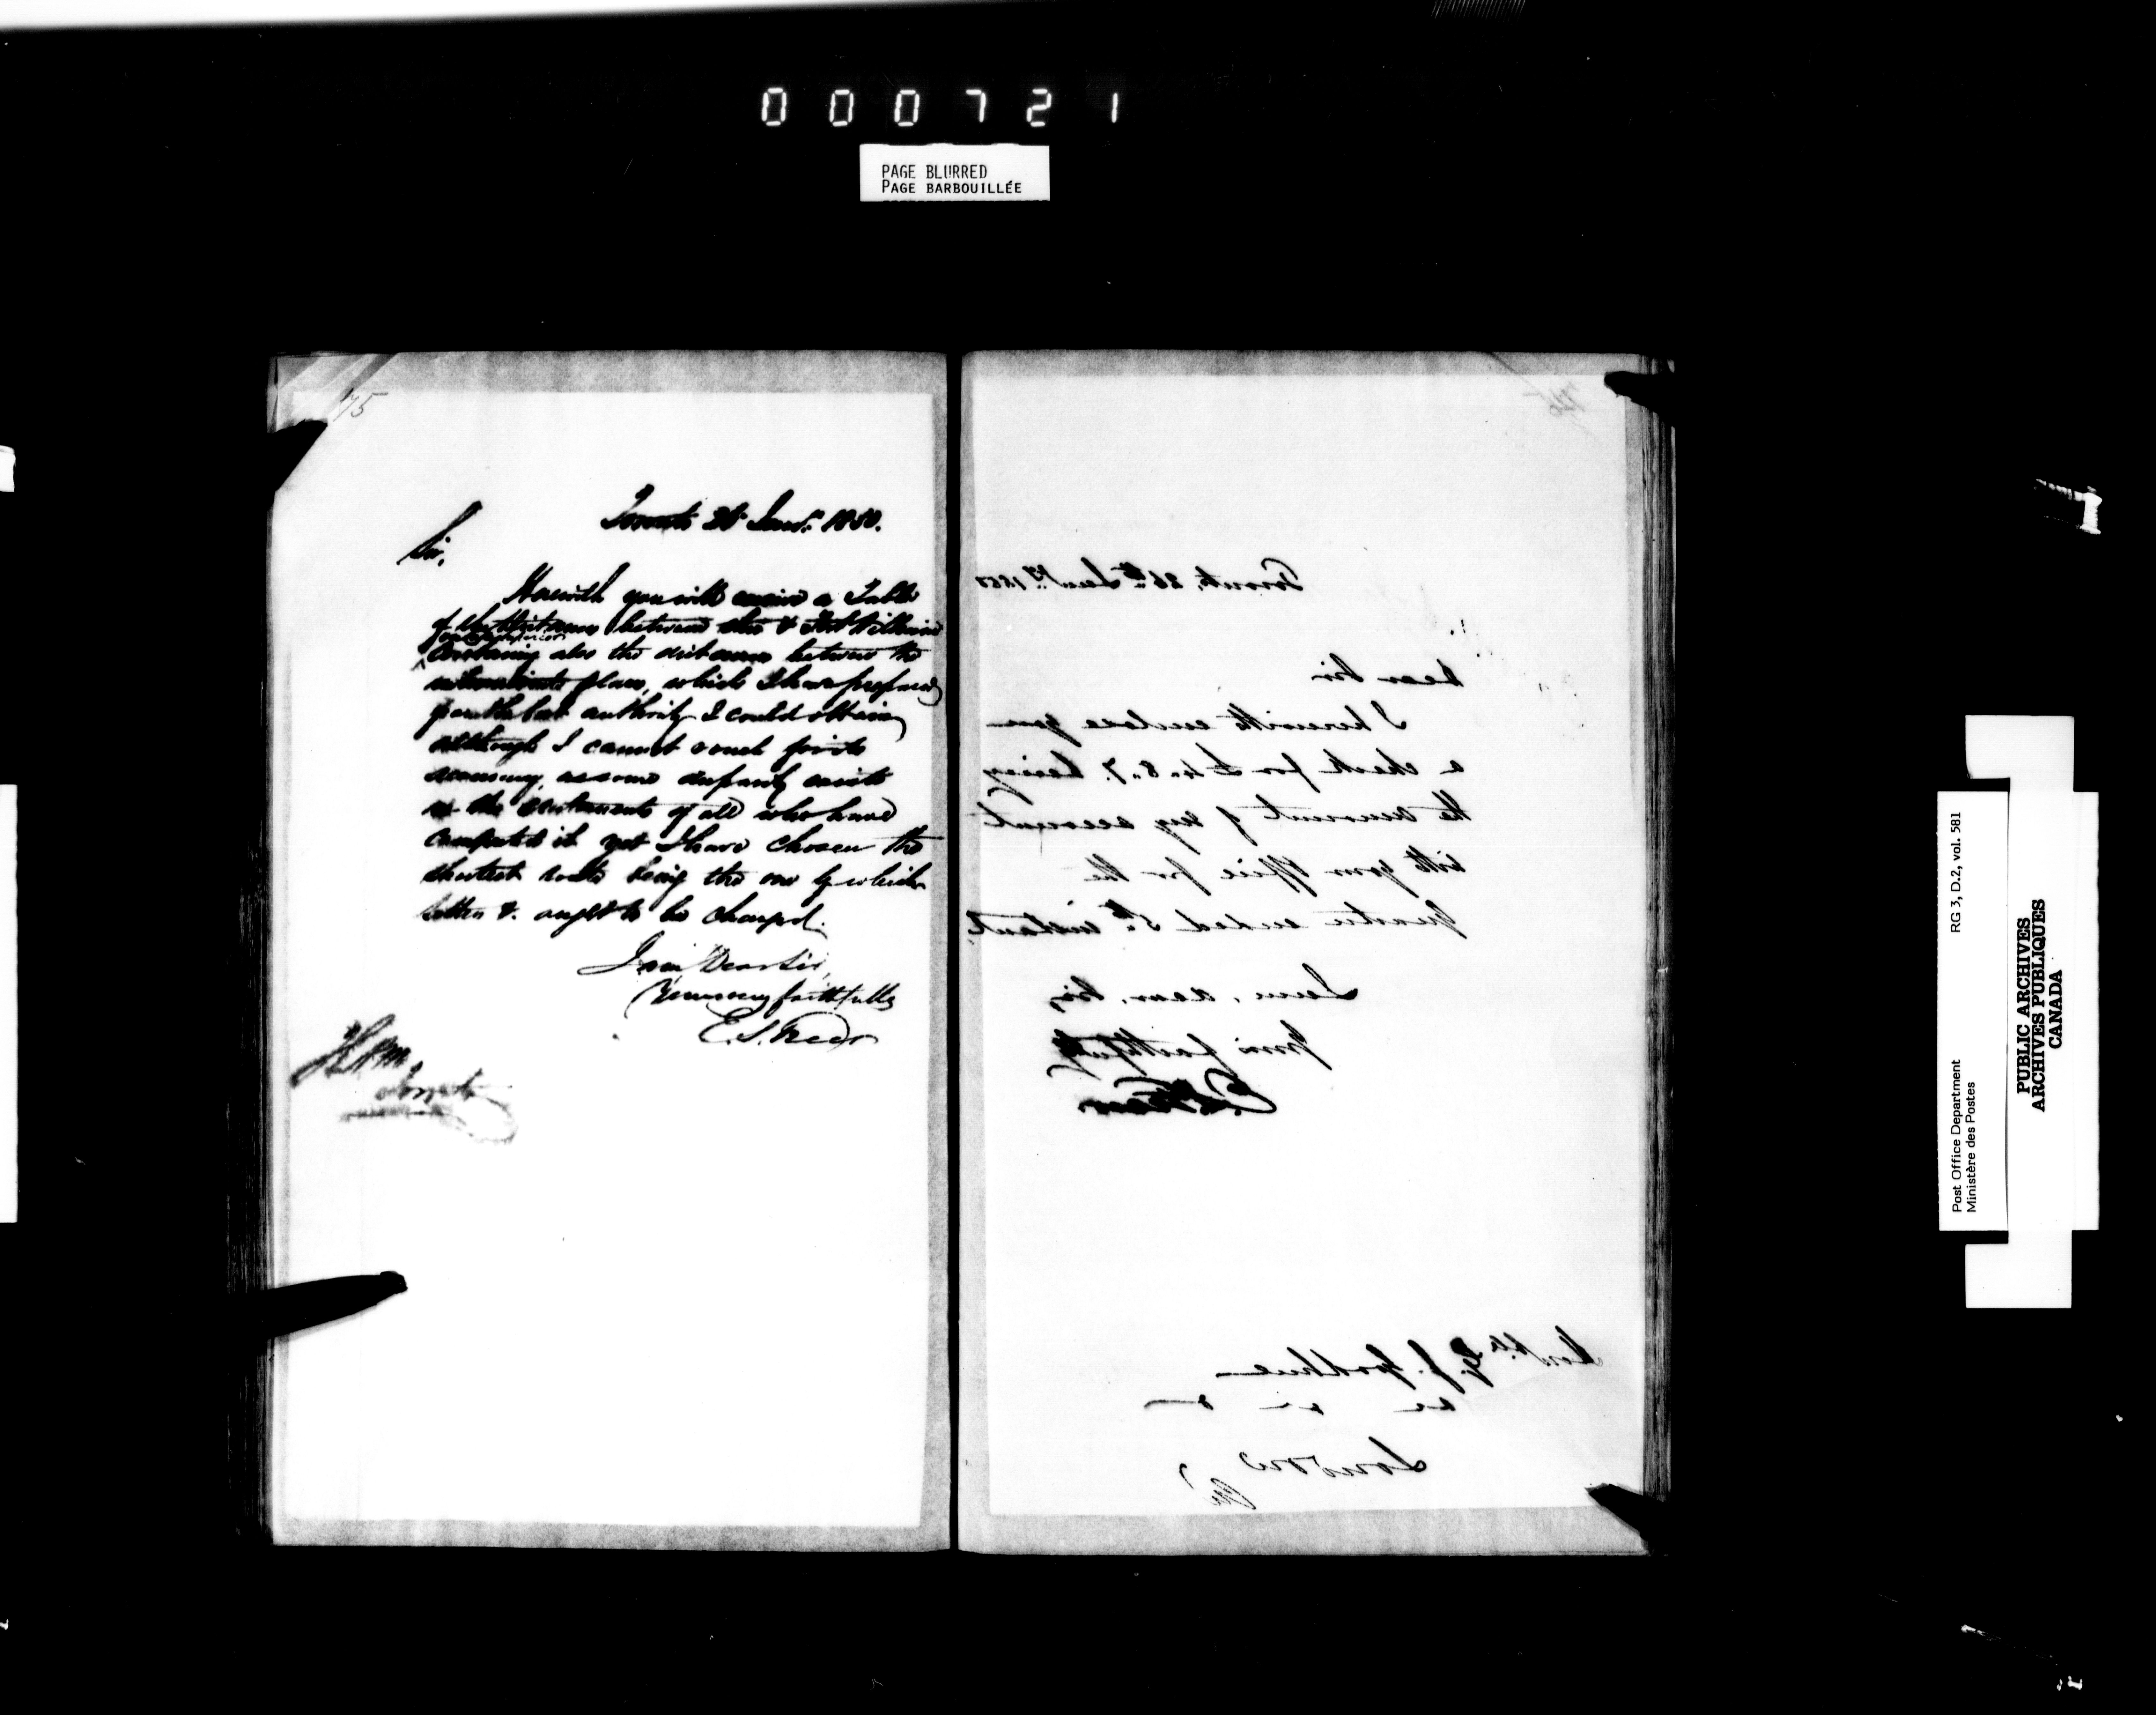 000721
PAGE BLURRED
PAGE BARBOUILLÉE
75
Toronto 26 Jany. 1850.
Sir,
Herewith you will receive a Table
of the distances between this & Fort William
containing also the distances between the
intermediate places, which I have prepared
from the best authority I could obtain
although I cannot vouch for its
accuracy, as some disparity exists
in the statements of all who have
computed it yet I have chosen the
shortest route being the one by which
letters &. ought to be charged.
I am Dear Sir,
Yours very faithfully
E. S. Freer
Toronto
Toronto, 26th Jany. 1850
Dear Sir
I herewith enclose you
a check for £4.8.7. being
the amount of my account
with your Office for the
Quarter ended 5th instant.
I am, dear Sir,
Yours faithfully
E. S. Freer
G. J. Goodhue
London
Post Office Department
Ministère des Postes
RG 3, D.2, vol. 581
PUBLIC ARCHIVES
ARCHIVES PUBLIQUES
CANADA